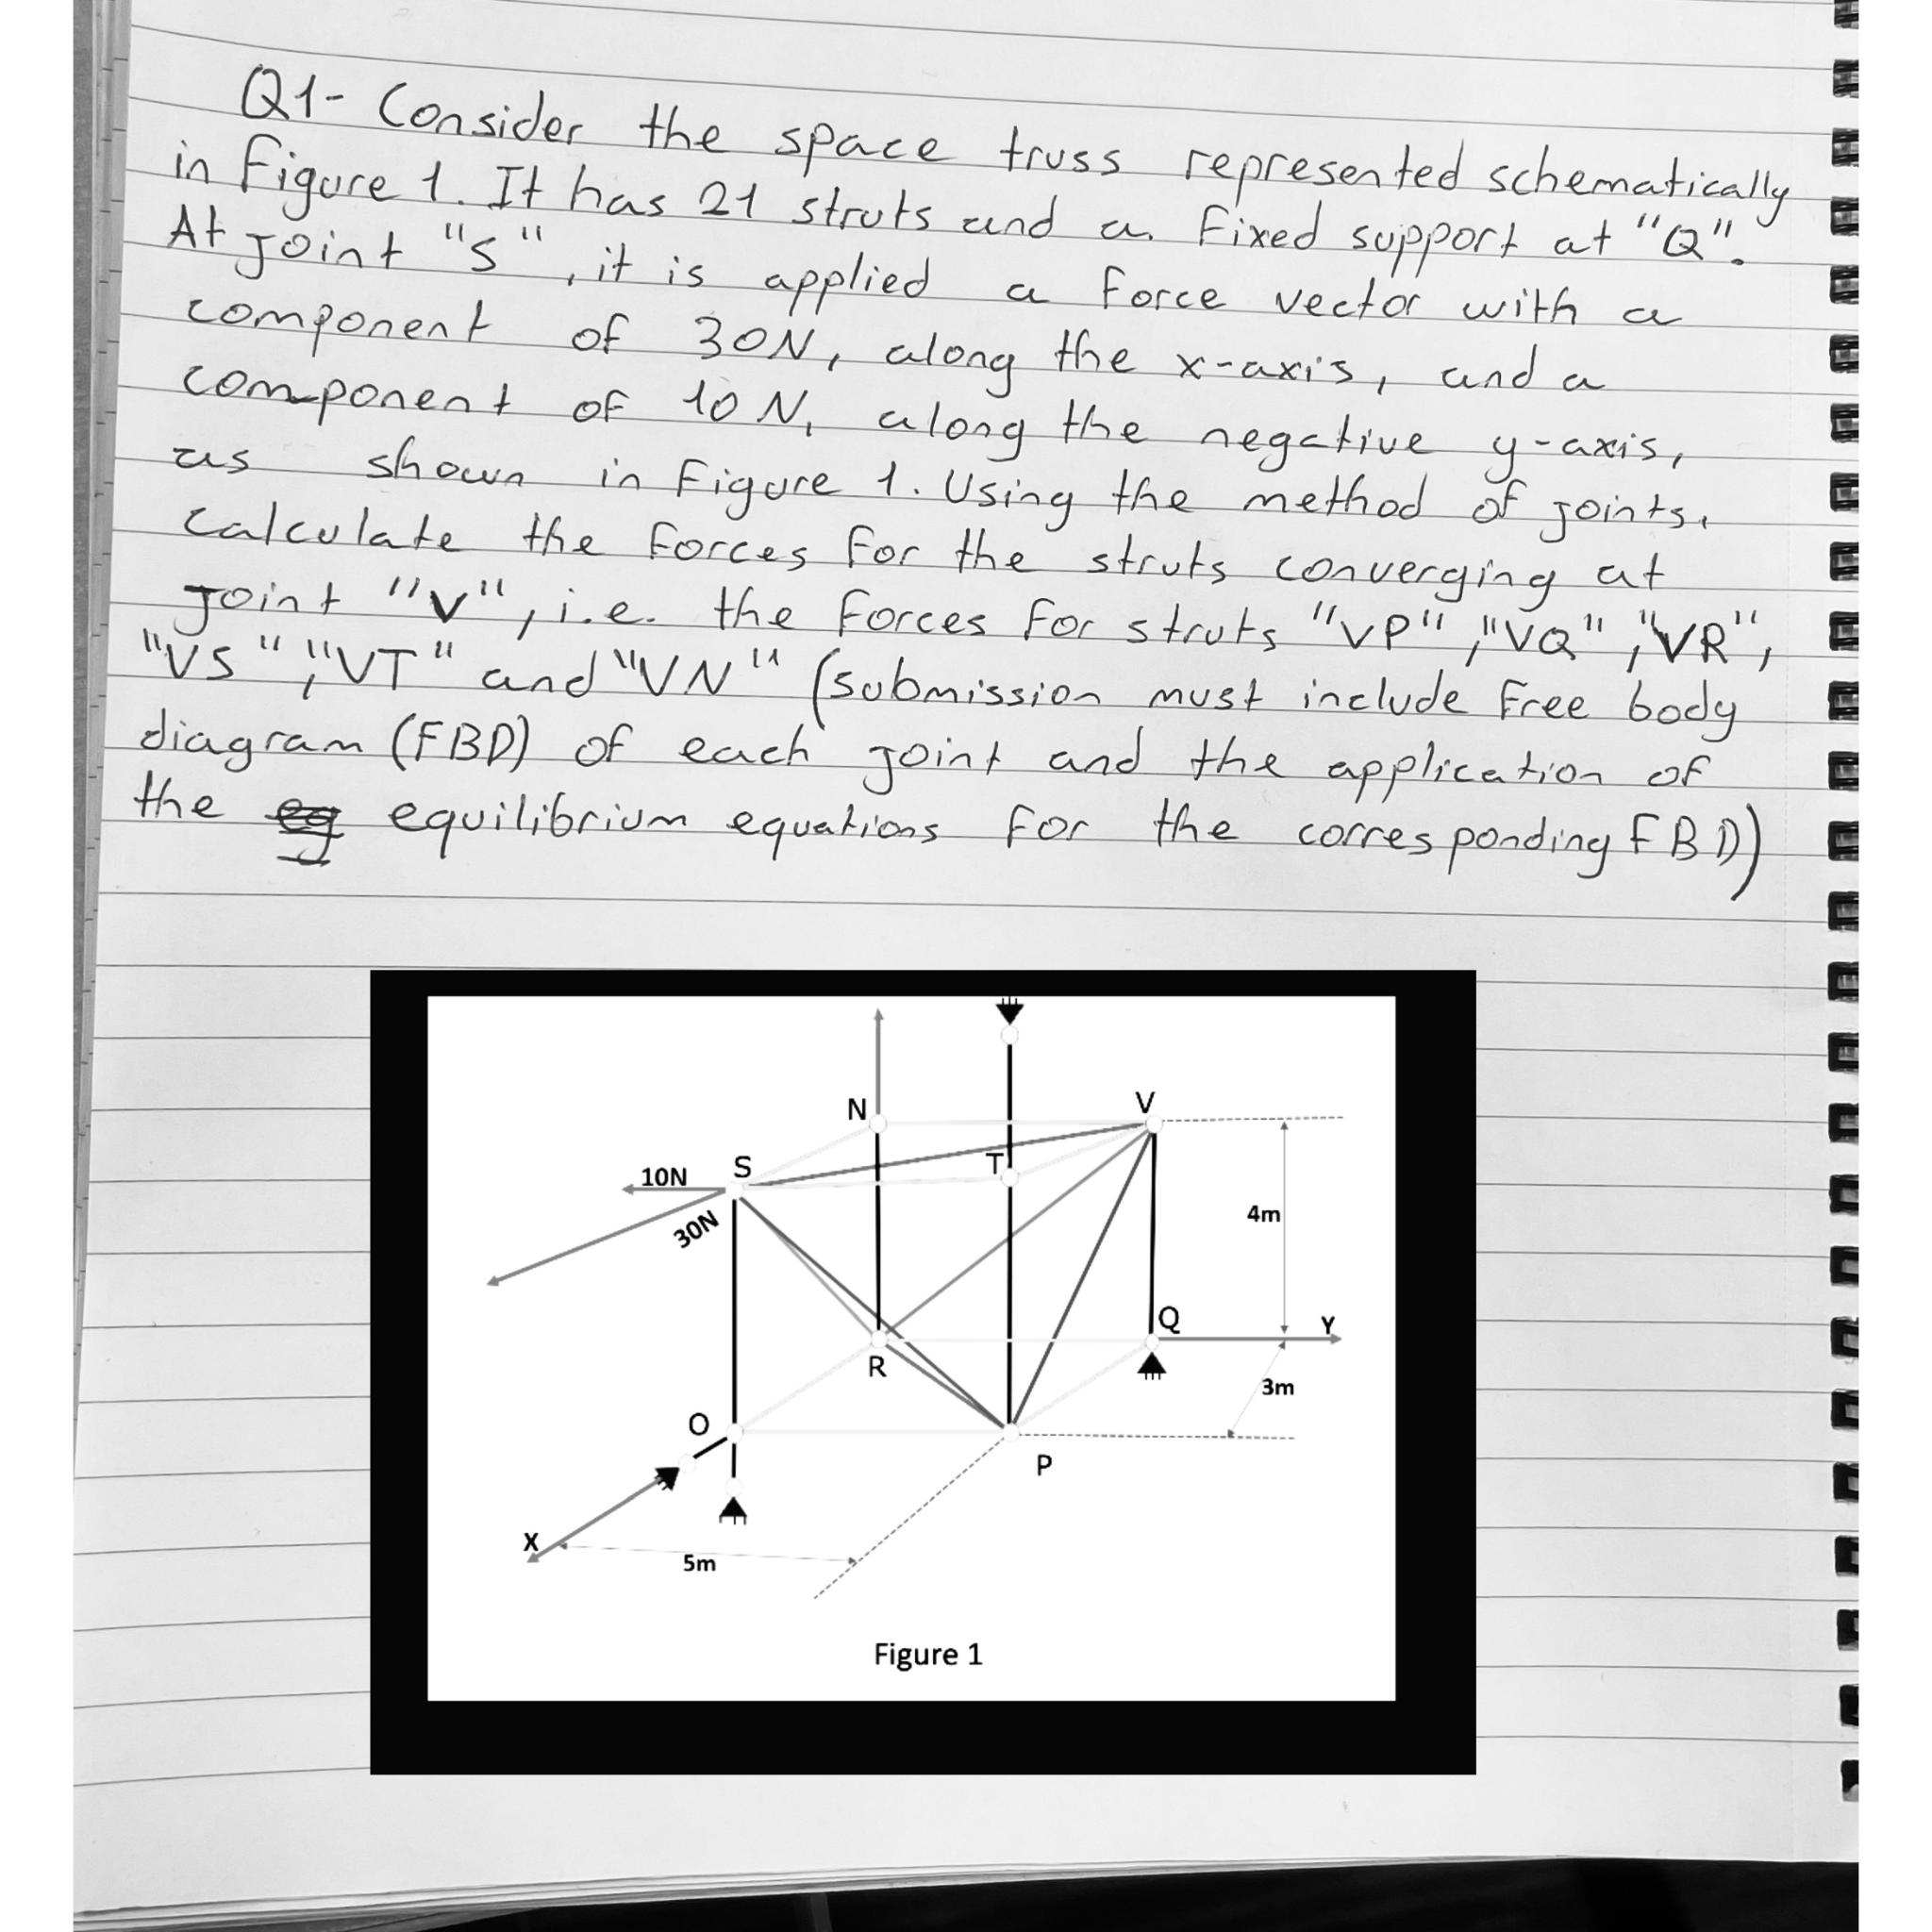 Q1- Consider the space truss represented schematically
in Figure 1. It has 21 struts and a fixed support at "Q".
At joint "S", it is applied a force vector with a
component of 30N, along the x-axis, and a
component of 10 N, along the negative y-axis,
as shown in Figure 1. Using the method of joints,
calculate the forces for the struts converging at
joint "V", i.e. the forces for struts "VP", "VQ", "VR",
"VS", "VT" and "VN" (submission must include free body
diagram (FBD) of each joint and the application of
the eq equilibrium equations for the corresponding FBD)
N
V
S
T
10N
30N
4m
Q
Y
R
3m
O
P
X
5m
Figure 1